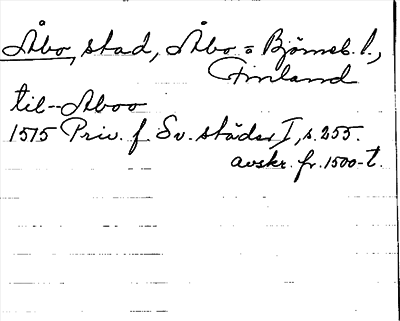 Åbo, stad, Åbo = Björneb. l.,
Finland
til--Aboo
1575 Priv. f. Sv. städer I, s. 255.
avskr. fr. 1500-t.